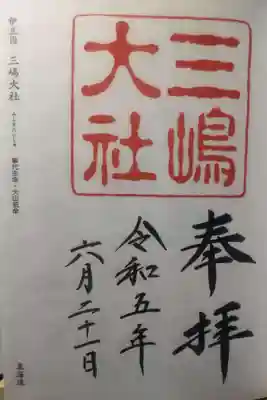 三嶋
大社
奉拝
令和五年
六月二十一日
伊豆国 三嶋大社
東海道